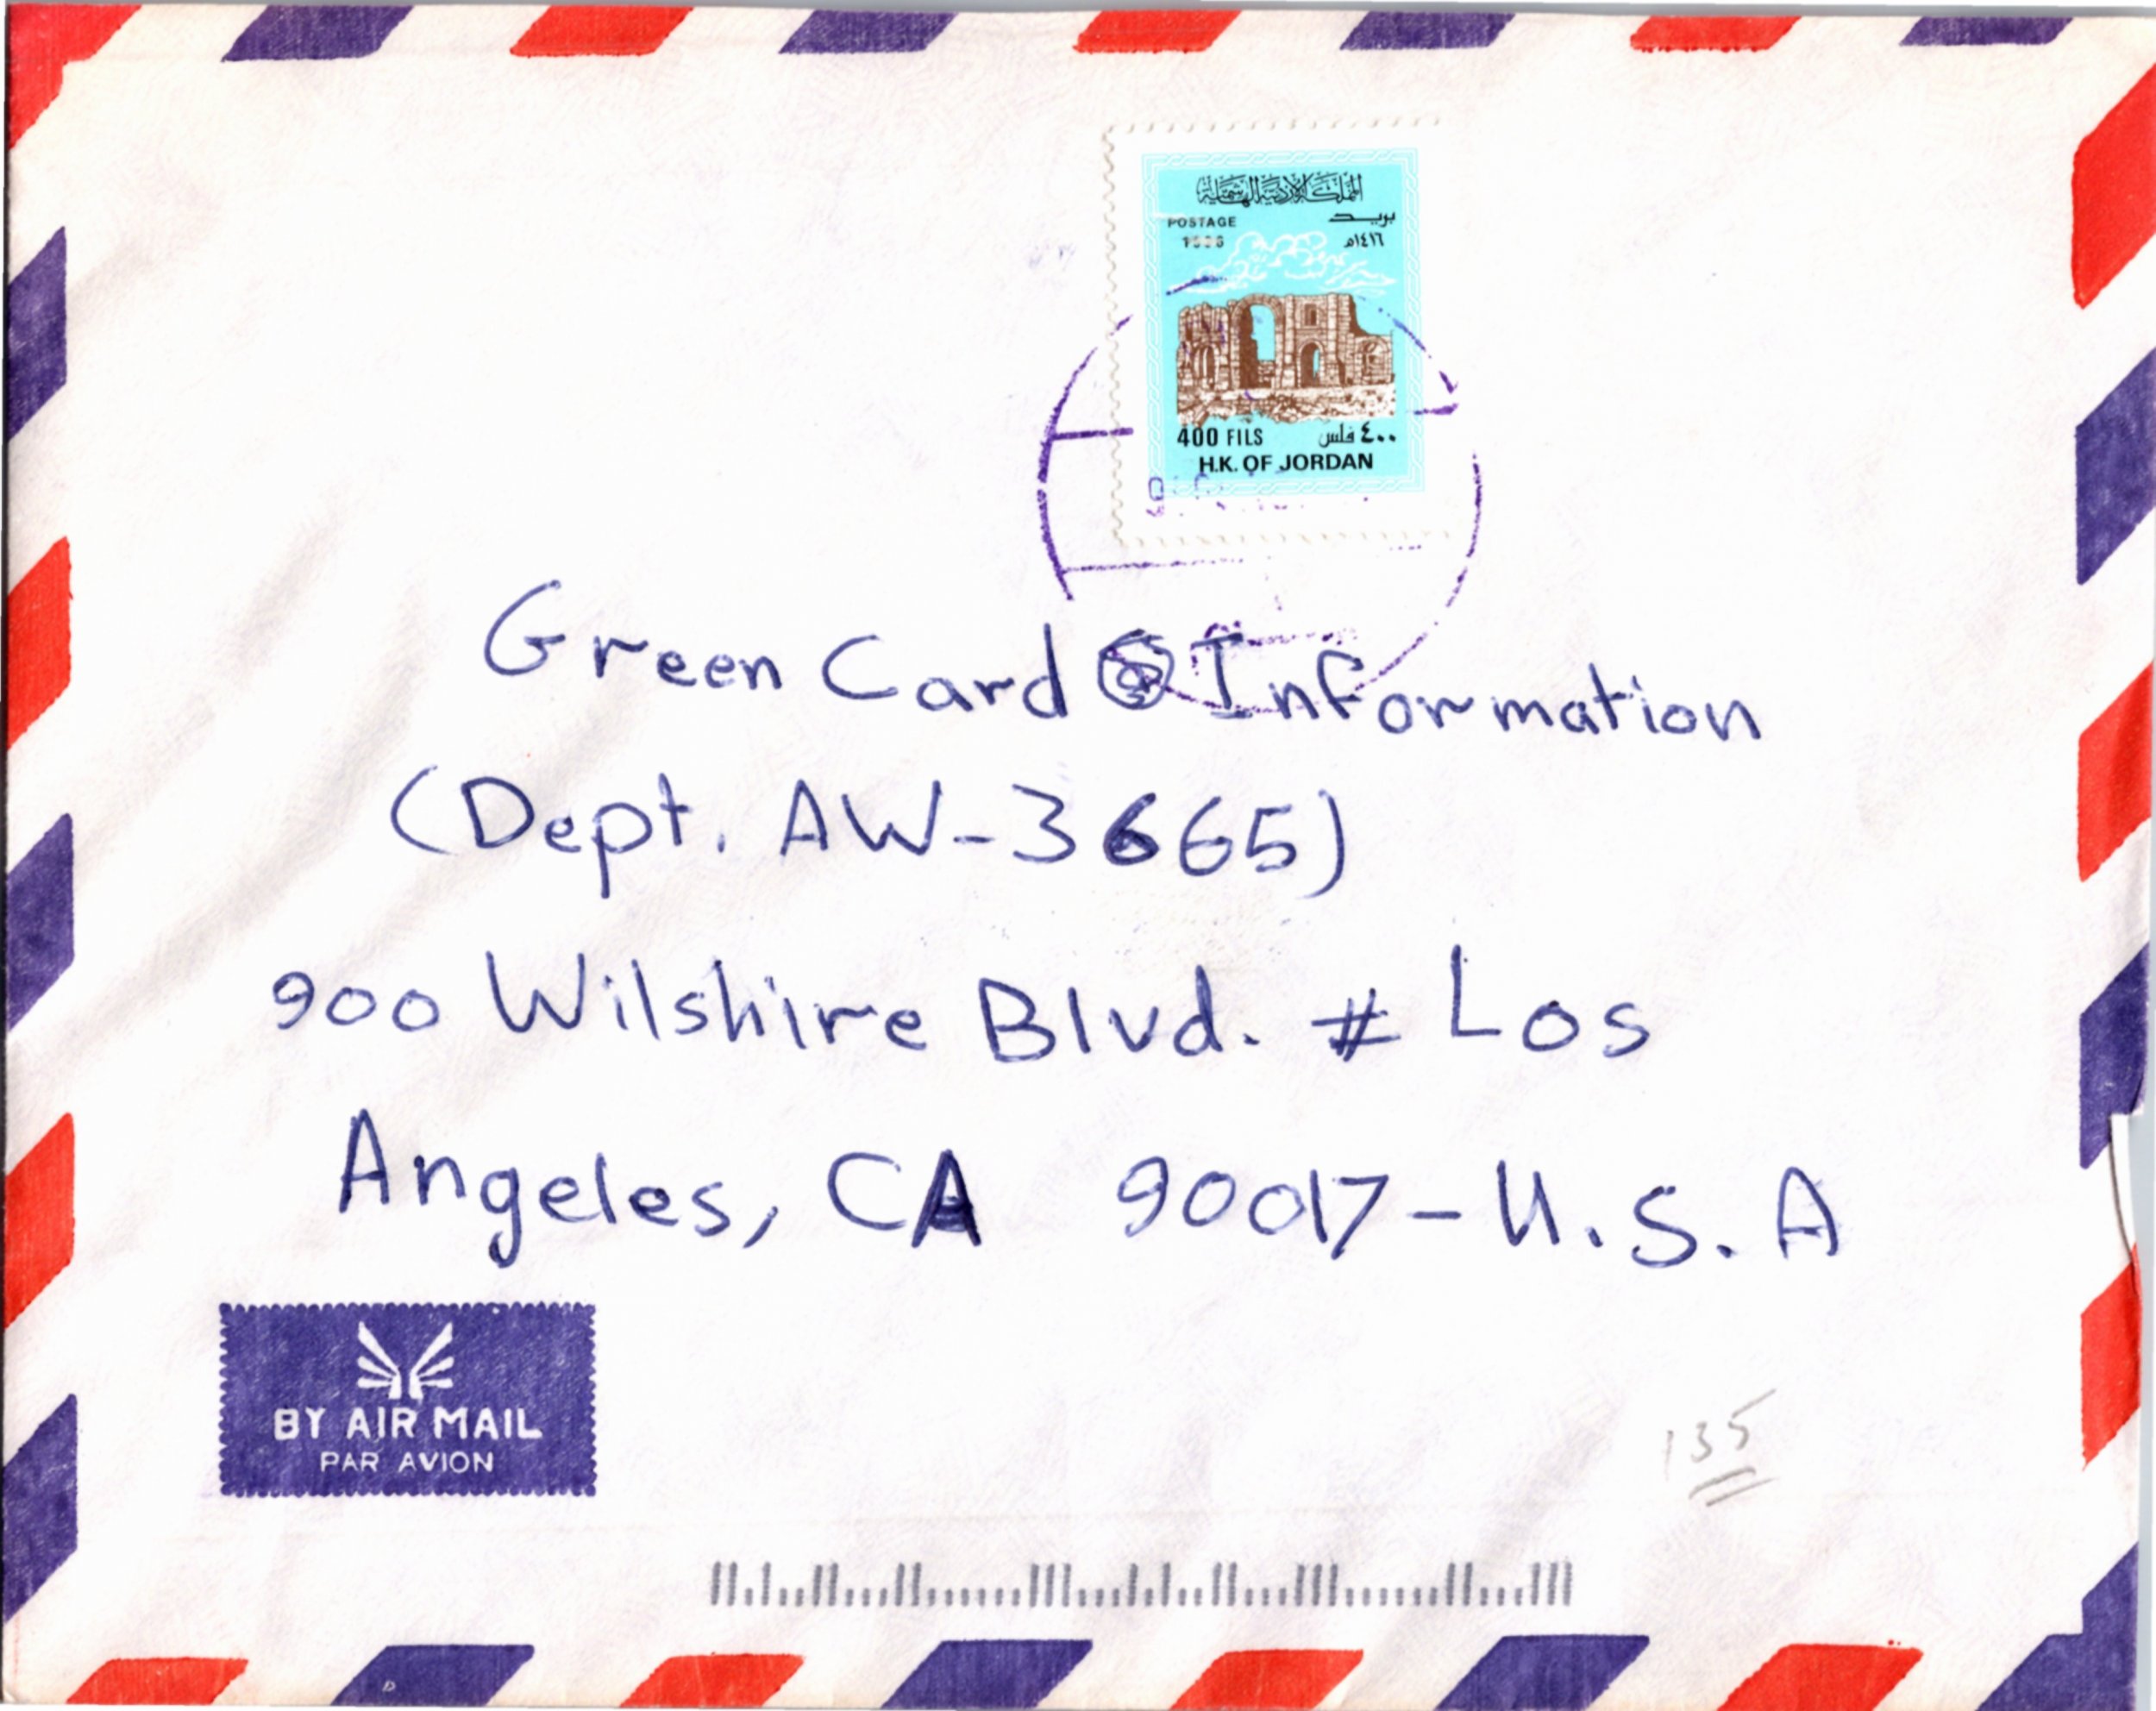 المملكة الأردنية الهاشمية
POSTAGE بريد
١٤١٦هـ
400 FILS ٤٠٠ فلس
H.K. OF JORDAN
Green Card Information
(Dept. AW-3665)
900 Wilshire Blvd. # Los
Angeles, CA 90017-U.S.A
BY AIR MAIL
PAR AVION
135